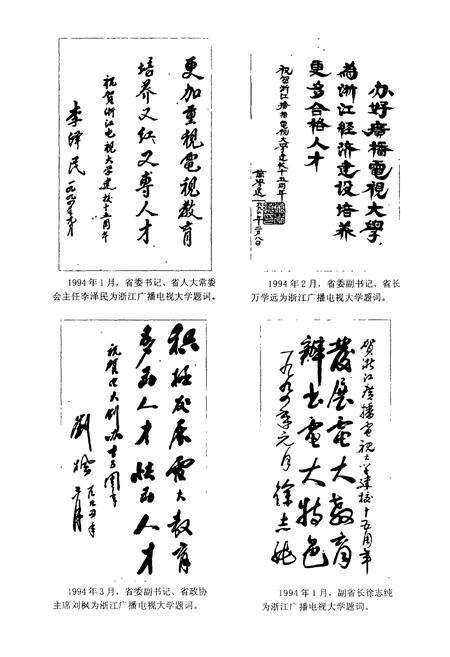 更加重視電視教育
培养又红又专人才
祝贺浙江电视大学建校十五周年
李泽民 一九九四年元月
1994年1月，省委书记、省人大常委
会主任李泽民为浙江广播电视大学题词。
办好廣播電視大學
為浙江经济建设培养
更多合格人才
祝贺浙江广播电视大学建校十五周年
萬學远
1994年2月，省委副书记、省长
万学远为浙江广播电视大学题词。
积极发展电大教育
多出人才 快出人才
祝贺电大创办十五周年
劉枫 一九九四年
1994年3月，省委副书记、省政协
主席刘枫为浙江广播电视大学题词。
贺浙江廣播電视大学建校十五周年
發展電大教育
辦出電大特色
一九九四年元月 徐志纯
1994年1月，副省长徐志纯
为浙江广播电视大学题词。